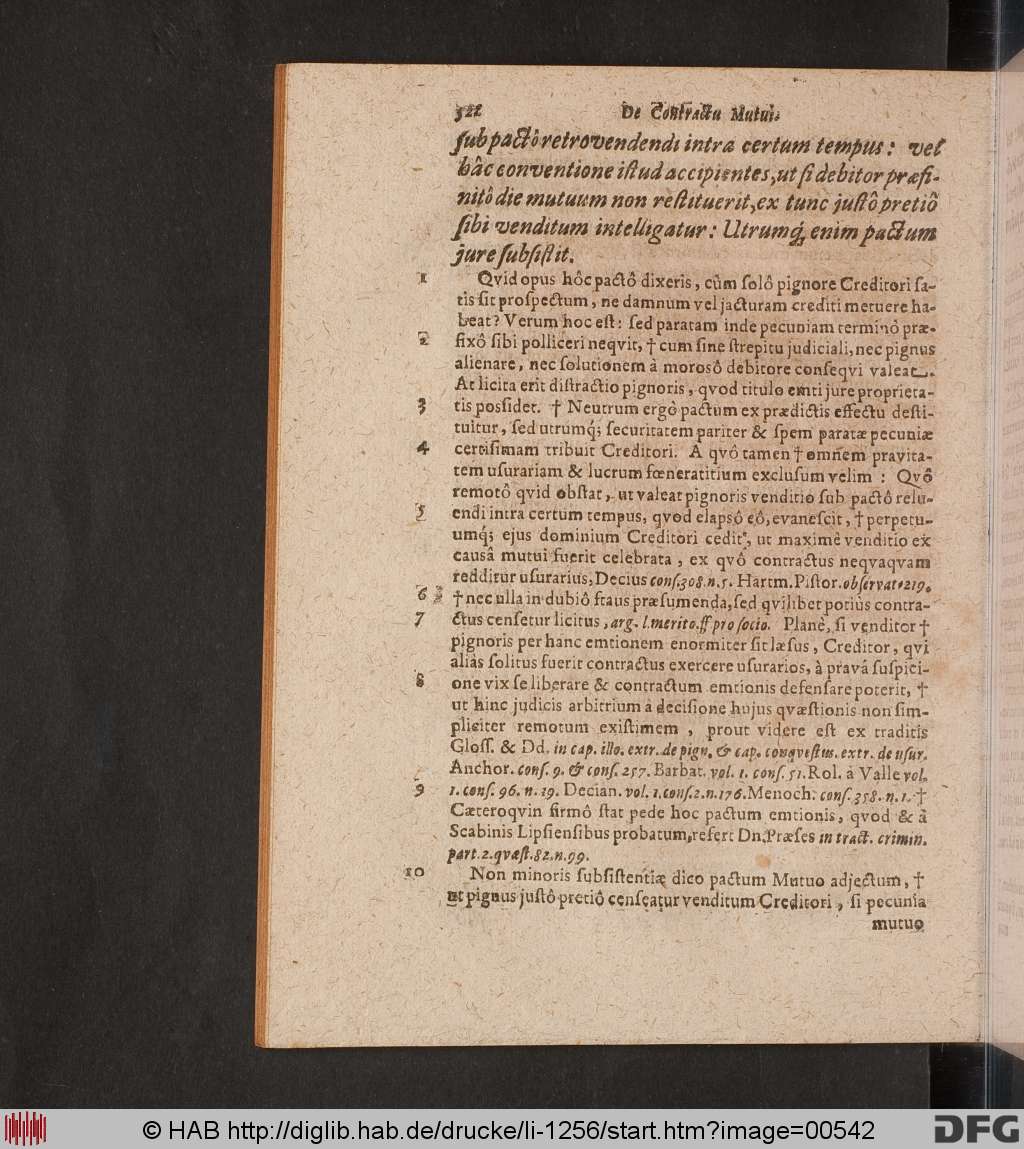 522 De Contractu Mutui.
sub pactô retrovendendi intra certum tempus: vel
hâc conventione istud accipientes, ut si debitor præfi-
nitô die mutuum non restituerit, ex tunc justô pretiô
sibi venditum intelligatur: Utrumq́; enim pactum
jure subsistit.
1 Qvid opus hôc pactô dixeris, cùm solô pignore Creditori sa-
tis sit prospectum, ne damnum vel jacturam crediti metuere ha-
beat? Verum hoc est: sed paratam inde pecuniam terminô præ-
2 fixô sibi polliceri neqvit, † cum sine strepitu judiciali, nec pignus
alienare, nec solutionem à morosô debitore conseqvi valeat.
At licita erit distractio pignoris, qvod titulo emti jure proprieta-
3 tis possidet. † Neutrum ergò pactum ex prædictis effectu desti-
tuitur, sed utrumq́; securitatem pariter & spem paratæ pecuniæ
4 certissimam tribuit Creditori. A qvô tamen † omnem pravita-
tem usurariam & lucrum fœneratitium exclusum velim: Qvô
remotô qvid obstat, ut valeat pignoris venditio sub pactô relu-
5 endi intra certum tempus, qvod elapsô eô, evanescit, † perpetu-
umq́; ejus dominium Creditori cedit, ut maximè venditio ex
causâ mutui fuerit celebrata, ex qvô contractus neqvaqvam
redditur usurarius, Decius cons. 308. n. 5. Hartm. Pistor. observat. 219.
6 † nec ulla in dubiô fraus præsumenda, sed qvilibet potiùs contra-
7 ctus censetur licitus, arg. l. merito. ff pro socio. Planè, si venditor †
pignoris per hanc emtionem enormiter sit læsus, Creditor, qvi
aliàs solitus fuerit contractus exercere usurarios, à pravâ suspici-
8 one vix se liberare & contractum emtionis defensare poterit, †
ut hinc judicis arbitrium à decisione hujus qvæstionis non sim-
pliciter remotum existimem, prout videre est ex traditis
Gloss. & Dd. in cap. illo. extr. de pign. & cap. conqvestus. extr. de usur.
Anchor. cons. 9. & cons. 257. Barbat. vol. 1. cons. 51. Rol. à Valle vol.
9 1. cons. 96. n. 19. Decian. vol. 1. cons. 2. n. 176. Menoch. cons. 358. n. 1. †
Cæteroqvin firmô stat pede hoc pactum emtionis, qvod & à
Scabinis Lipsiensibus probatum, refert Dn. Præses in tract. crimin.
part. 2. qvæst. 82. n. 99.
10 Non minoris subsistentiæ dico pactum Mutuo adjectum, †
ut pignus justô pretiô censeatur venditum Creditori, si pecunia
mutuo
© HAB http://diglib.hab.de/drucke/li-1256/start.htm?image=00542
DFG